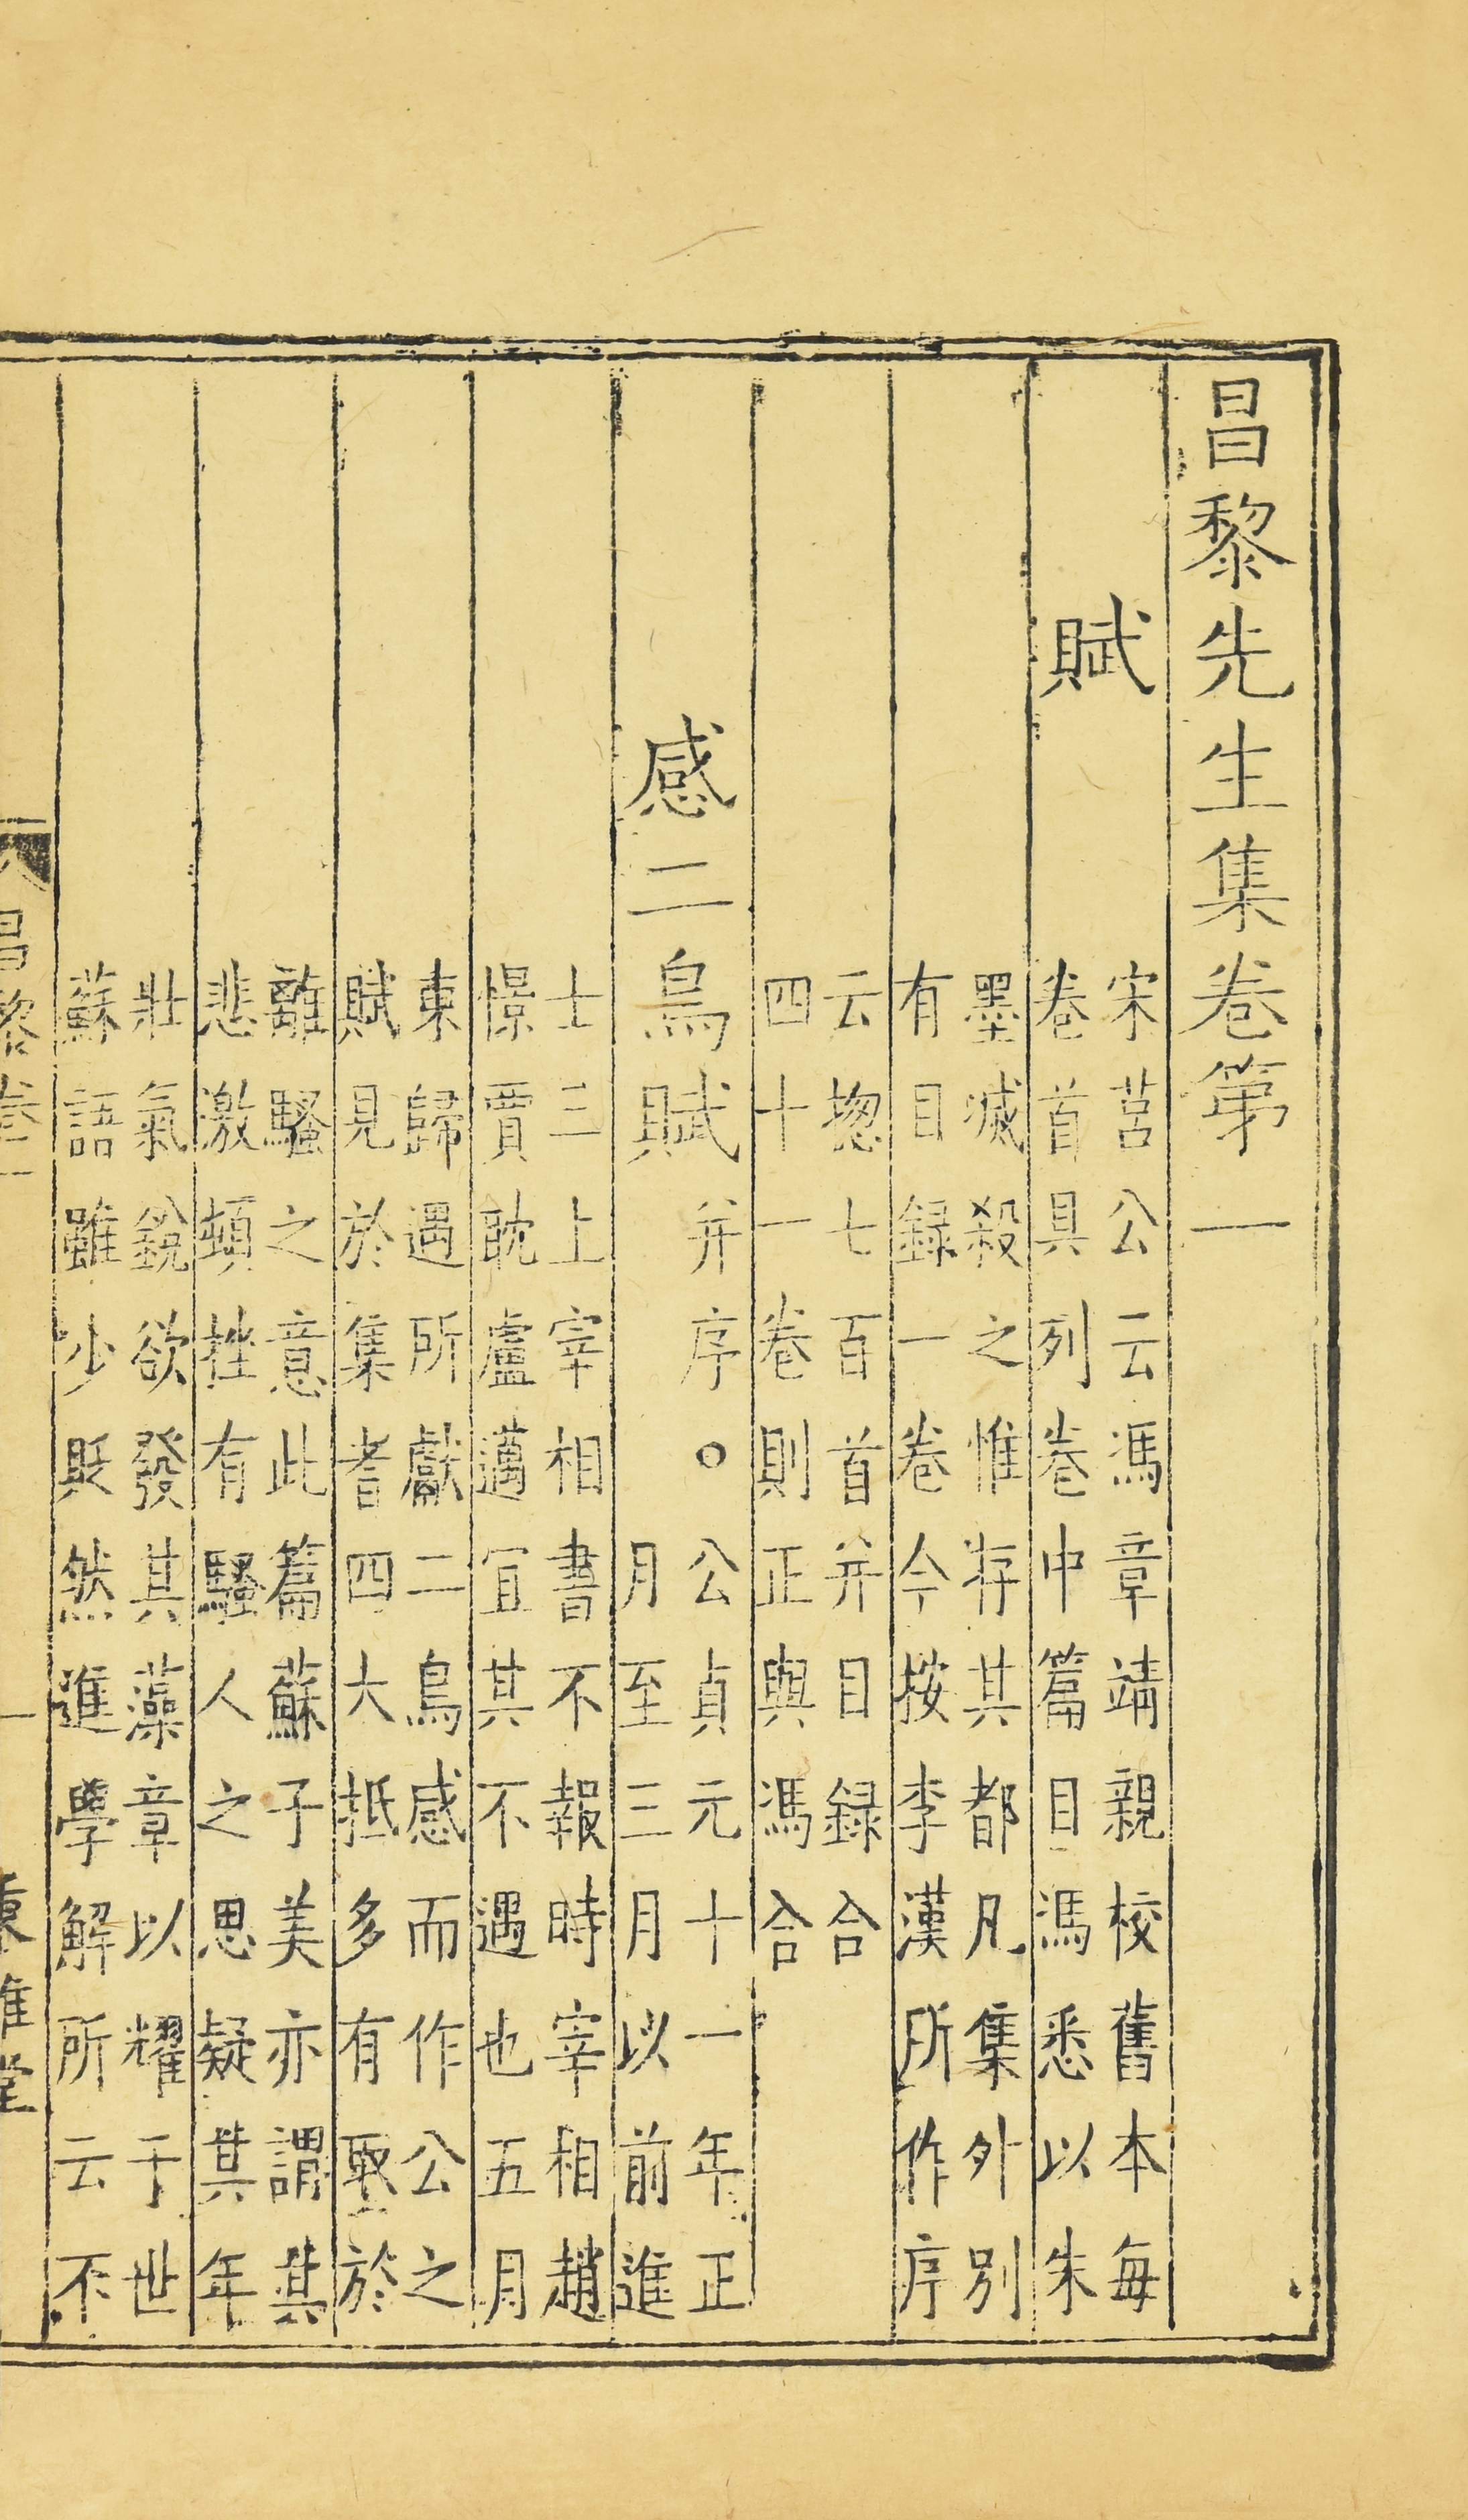 昌黎先生集卷第一
賦
宋莒公云馮章靖親校舊本每
卷首具列卷中篇目馮悉以朱
墨滅殺之惟存其都凡集外別
有目録一卷今按李漢所作序
云揔七百首并目録合
四十一卷則正與馮合
感二鳥賦
并序○公貞元十一年正
月至三月以前進
士三上宰相書不報時宰相趙
憬賈耽盧邁宜其不遇也五月
東歸遇所獻二鳥感而作公之
賦見於集者四大抵多有取於
離騷之意此篇蘇子美亦謂其
悲激頓挫有騷人之思疑其年
壯氣銳欲發其藻章以耀于世
蘇語雖少貶然進學解所云不
昌黎卷一
一
東雅堂